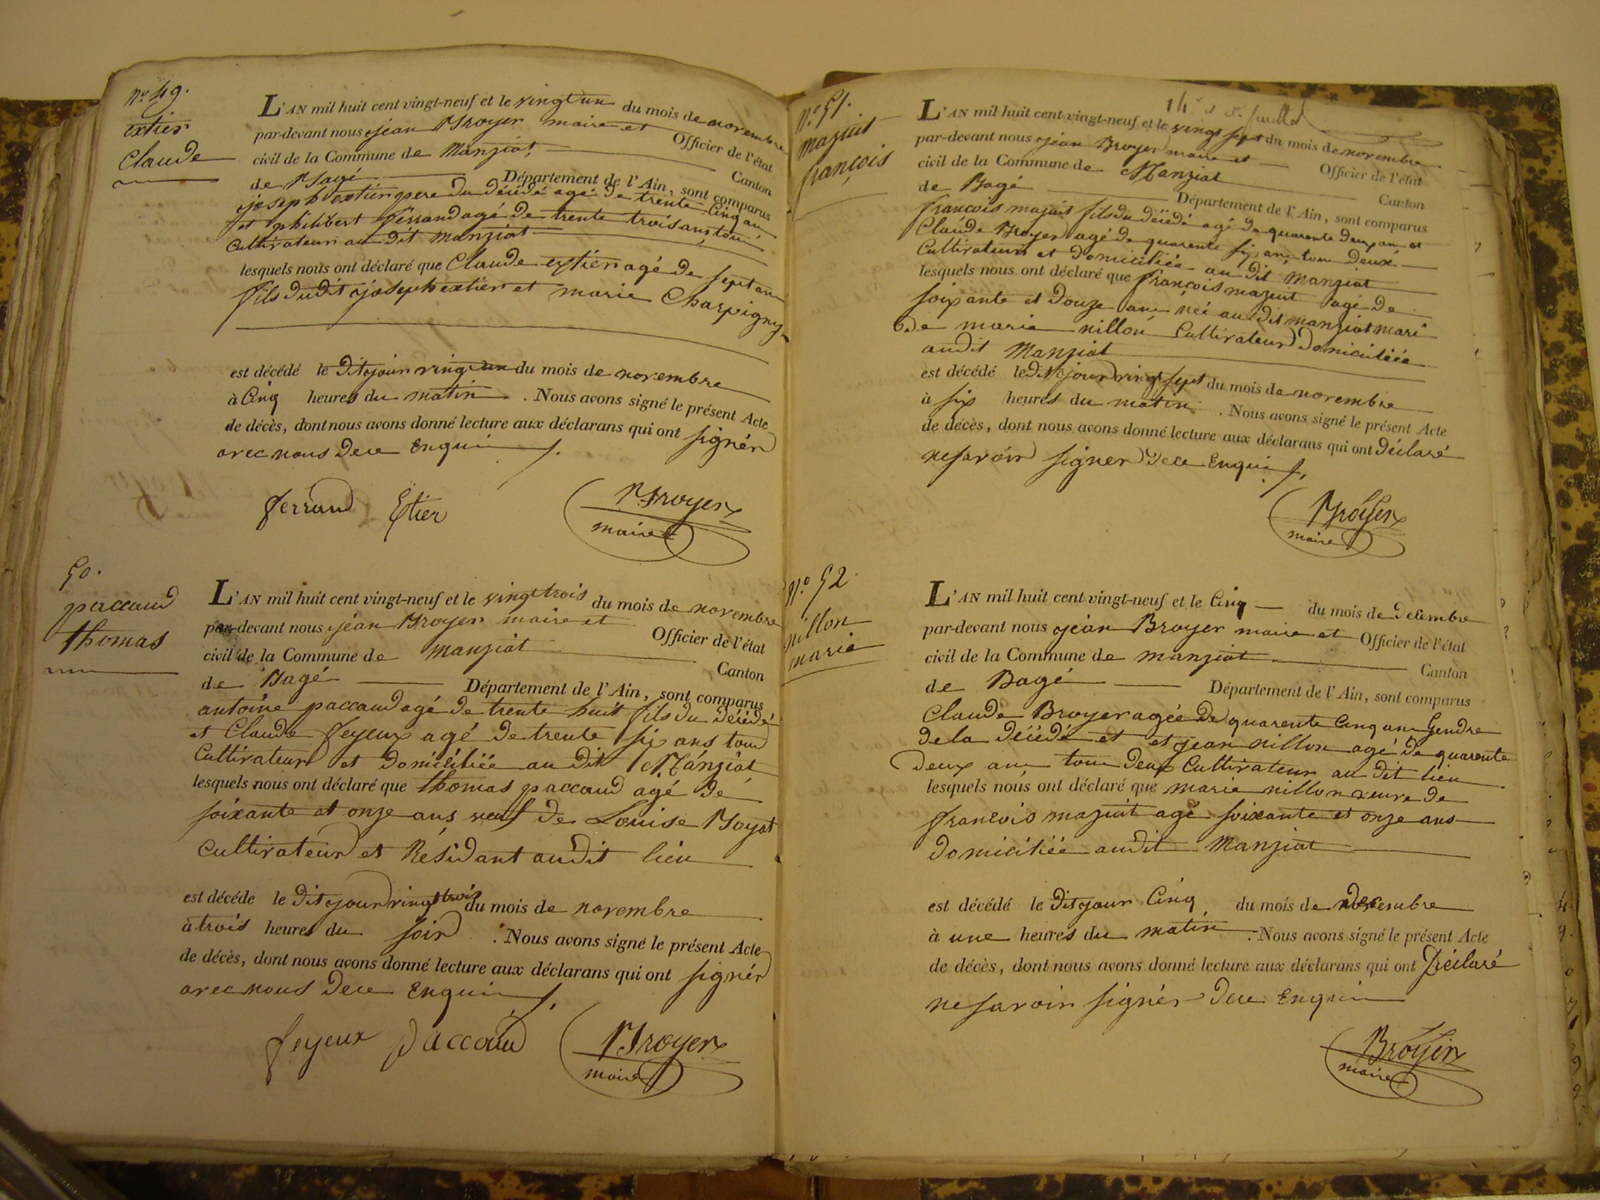 N° 49.
extier
Claude
L'AN mil huit cent vingt-neuf et le vingt un du mois de novembre
par-devant nous jean Broyer maire et Officier de l'état
civil de la Commune de Manziat Canton
de Bagé Département de l'Ain, sont comparus
joseph extier pere du décédé agé de trente cinq an
et philibert ferrand agé de trente trois ans tous
Cultivateur au dit Manziat
lesquels nous ont déclaré que Claude extier agé de sept an
fils dudit joseph extier et marie Charpigny
est décédé le dit jour vingt un du mois de novembre
à Cinq heures du matin . Nous avons signé le présent Acte
de décès, dont nous avons donné lecture aux déclarans qui ont signér
avec nous dece Enquis
ferrand Etier Broyer
maire
50.
paccaud
thomas
L'AN mil huit cent vingt-neuf et le vingt trois du mois de novembre
par-devant nous jean Broyer maire et Officier de l'état
civil de la Commune de Manziat Canton
de Bagé Département de l'Ain, sont comparus
antoine paccaud agé de trente huit fils du décédé
et Claude feyeux agé de trente six ans tous
Cultivateur et domiciliée au dit Manziat
lesquels nous ont déclaré que thomas paccaud agé de
soixante et onze ans veuf de Louise Boyat
Cultivateur et Résidant audit lieu
est décédé le dit jour vingt trois du mois de novembre
à trois heures du soir . Nous avons signé le présent Acte
de décès, dont nous avons donné lecture aux déclarans qui ont signér
avec nous dece Enquis
feyeux paccaud Broyer
maire
N° 51.
majuit
françois
L'AN mil huit cent vingt-neuf et le vingt sept du mois de novembre
par-devant nous jean Broyer maire et Officier de l'état
civil de la Commune de Manziat Canton
de Bagé Département de l'Ain, sont comparus
françois majuit fils du décédé agé de quarente deux an et
Claude Broyer agé de quarente six ans tous deux
Cultivateur et domiciliée au dit Manziat
lesquels nous ont déclaré que françois majuit agé de
soixante et douze ans née au dit manziat mari
de marie nillon Cultivateur domiciliée
audit Manziat
est décédé le dit jour vingt sept du mois de novembre
à six heures du matin . Nous avons signé le présent Acte
de décès, dont nous avons donné lecture aux déclarans qui ont déclaré
ne savoir signer dece Enquis
Broyer
maire
N° 52
nillon
marie
L'AN mil huit cent vingt-neuf et le Cinq du mois de decembre
par-devant nous jean Broyer maire et Officier de l'état
civil de la Commune de manziat Canton
de Bagé Département de l'Ain, sont comparus
Claude Broyer agée de quarente Cinq an gendre
de la décédé et et jean nillon agé de quarente
deux an tous deux Cultivateur au dit lieu
lesquels nous ont déclaré que marie nillon veuve de
francois majuit agé soixante et onze ans
domiciliée audit Manziat
est décédé le dit jour Cinq du mois de decembre
à une heures du matin . Nous avons signé le présent Acte
de décès, dont nous avons donné lecture aux déclarans qui ont Déclaré
ne savoir signér dece Enquis
Broyer
maire